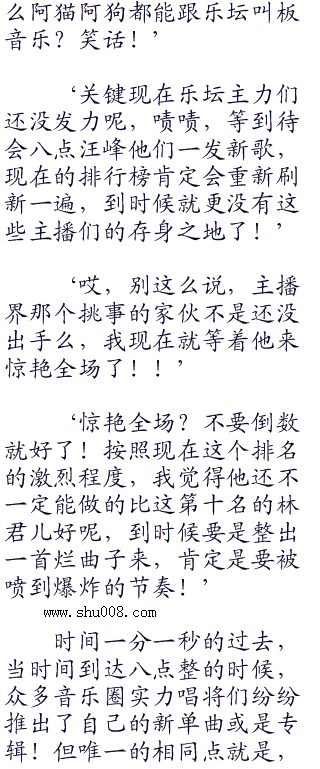 么阿猫阿狗都能跟乐坛叫板
音乐？笑话！’
‘关键现在乐坛主力们
还没发力呢，啧啧，等到待
会八点汪峰他们一发新歌，
现在的排行榜肯定会重新刷
新一遍，到时候就更没有这
些主播们的存身之地了！’
‘哎，别这么说，主播
界那个挑事的家伙不是还没
出手么，我现在就等着他来
惊艳全场了！！’
‘惊艳全场？不要倒数
就好了！按照现在这个排名
的激烈程度，我觉得他还不
一定能做的比这第十名的林
君儿好呢，到时候要是整出
一首烂曲子来，肯定是要被
喷到爆炸的节奏！’
www.shu008.com
时间一分一秒的过去，
当时间到达八点整的时候，
众多音乐圈实力唱将们纷纷
推出了自己的新单曲或是专
辑！但唯一的相同点就是，